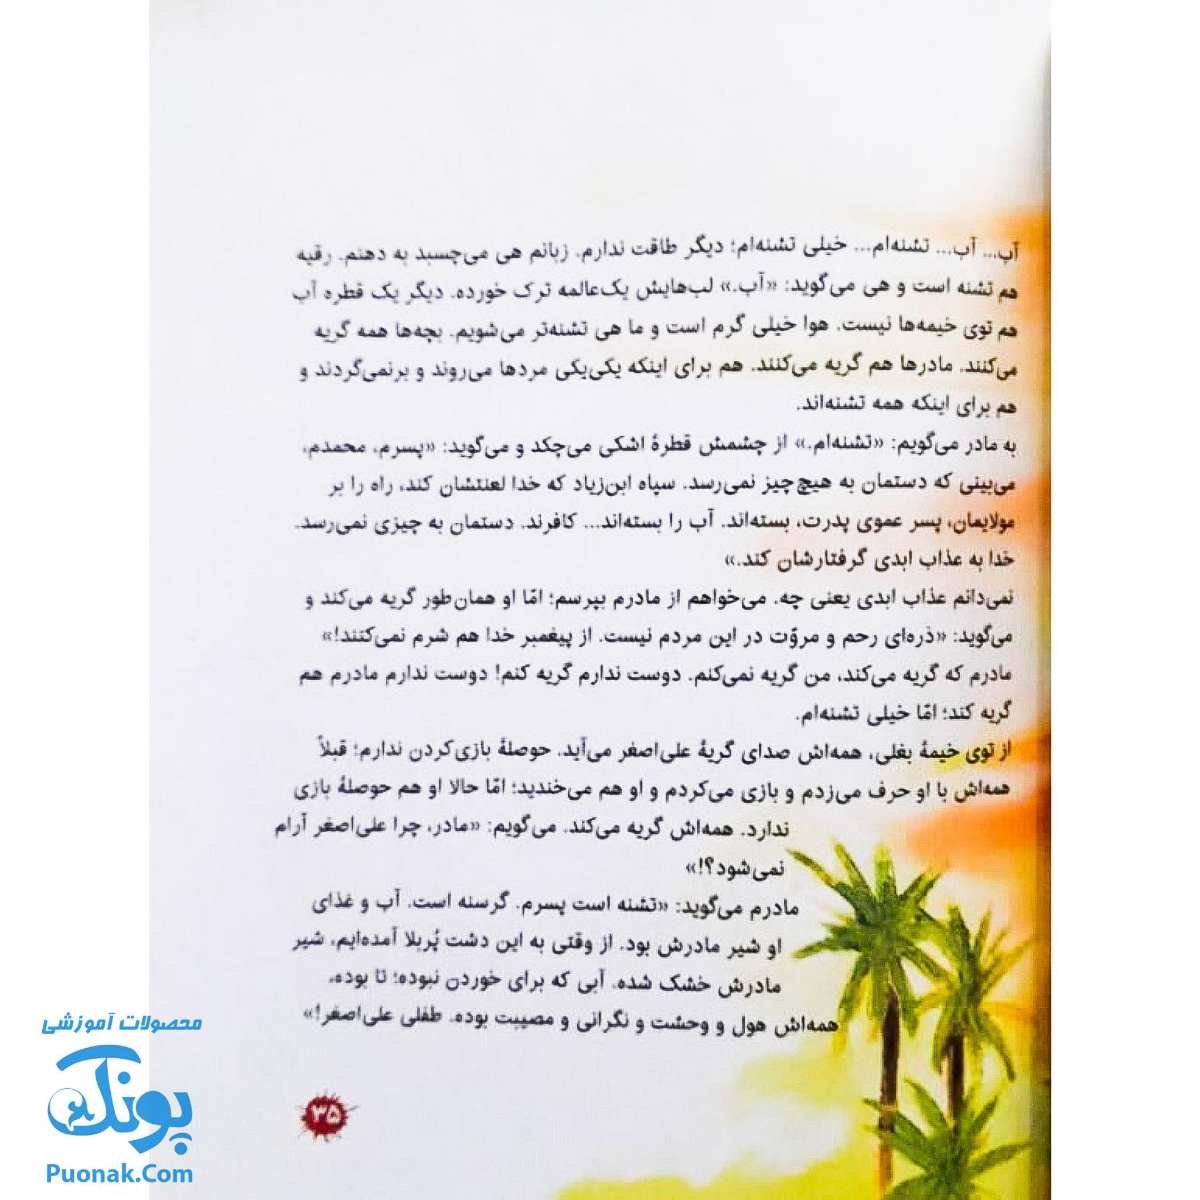 آب... آب... تشنه‌ام... خیلی تشنه‌ام؛ دیگر طاقت ندارم. زبانم هی می‌چسبد به دهنم. رقیه
هم تشنه است و هی می‌گوید: «آب.» لب‌هایش یک‌عالمه ترک خورده. دیگر یک قطره آب
هم توی خیمه‌ها نیست. هوا خیلی گرم است و ما هی تشنه‌تر می‌شویم. بچه‌ها همه گریه
می‌کنند. مادرها هم گریه می‌کنند. هم برای اینکه یکی‌یکی مردها می‌روند و برنمی‌گردند و
هم برای اینکه همه تشنه‌اند.
به مادر می‌گویم: «تشنه‌ام.» از چشمش قطرهٔ اشکی می‌چکد و می‌گوید: «پسرم، محمدم،
می‌بینی که دستمان به هیچ‌چیز نمی‌رسد. سپاه ابن‌زیاد که خدا لعنتشان کند، راه را بر
مولایمان، پسر عموی پدرت، بسته‌اند. آب را بسته‌اند... کافرند. دستمان به چیزی نمی‌رسد.
خدا به عذاب ابدی گرفتارشان کند.»
نمی‌دانم عذاب ابدی یعنی چه. می‌خواهم از مادرم بپرسم؛ امّا او همان‌طور گریه می‌کند و
می‌گوید: «ذره‌ای رحم و مروّت در این مردم نیست. از پیغمبر خدا هم شرم نمی‌کنند!»
مادرم که گریه می‌کند، من گریه نمی‌کنم. دوست ندارم گریه کنم! دوست ندارم مادرم هم
گریه کند؛ امّا خیلی تشنه‌ام.
از توی خیمهٔ بغلی، همه‌اش صدای گریهٔ علی‌اصغر می‌آید. حوصلهٔ بازی‌کردن ندارم؛ قبلاً
همه‌اش با او حرف می‌زدم و بازی می‌کردم و او هم می‌خندید؛ امّا حالا او هم حوصلهٔ بازی
ندارد. همه‌اش گریه می‌کند. می‌گویم: «مادر، چرا علی‌اصغر آرام
نمی‌شود؟!»
مادرم می‌گوید: «تشنه است پسرم. گرسنه است. آب و غذای
او شیر مادرش بود. از وقتی به این دشت پُربلا آمده‌ایم، شیر
مادرش خشک شده. آبی که برای خوردن نبوده؛ تا بوده،
همه‌اش هول و وحشت و نگرانی و مصیبت بوده. طفلی علی‌اصغر!»
۳۵
محصولات آموزشی
پونک
Puonak.Com